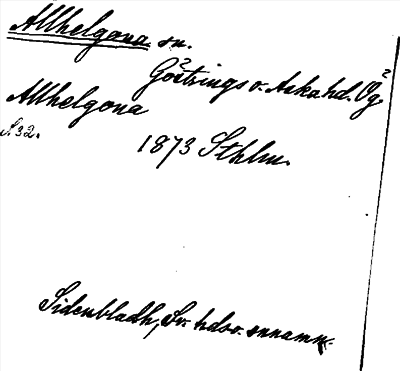 Allhelgona sn.
Göstrings o. Aska hd. Ög.
Allhelgona
S. 32.
1873 Sthlm.
Sidenbladh, Sv. hdsv. snnamn.